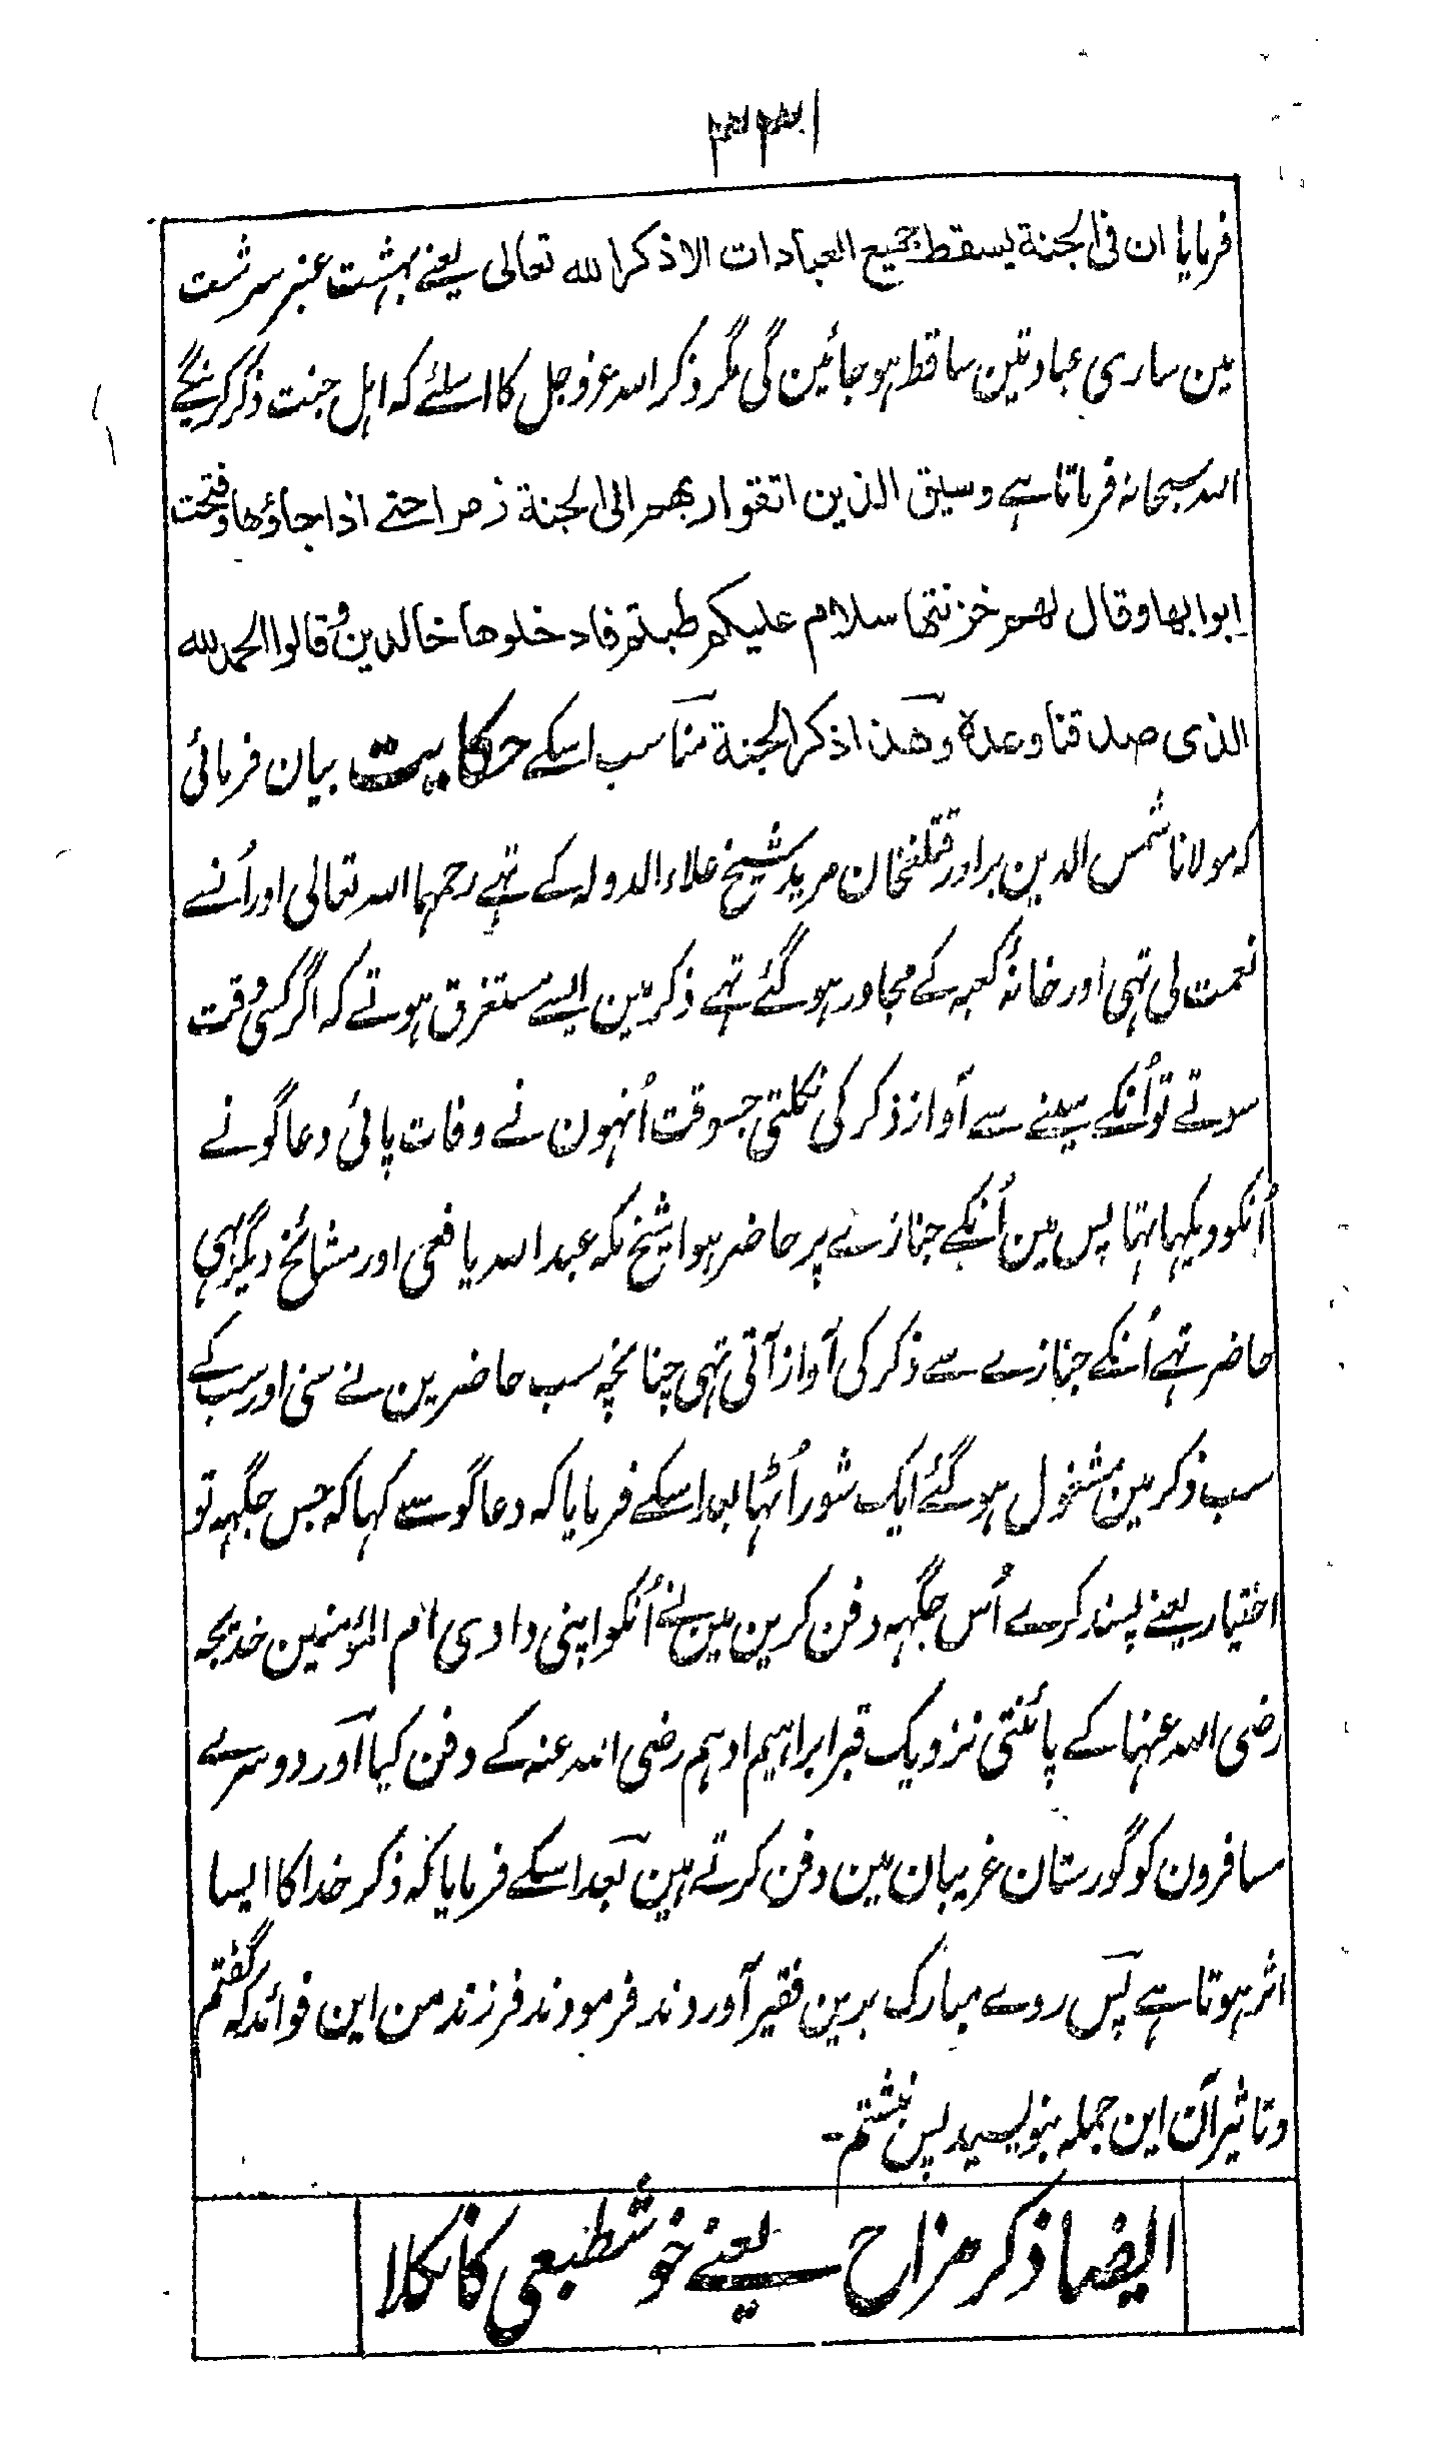 ۳۳۱
فرمایا ان فی الجنة یسقط جمیع العبادات الا ذکر الله تعالی یعنے بہشت عنبر سرشت
مین ساری عبادتین ساقط ہو جائین گی مگر ذکر اللہ عزوجل کا اسلئے کہ اہل جنت ذکر کرینگے
اللہ سبحانہ فرماتا ہے وسیق الذین اتقوا ربهم الی الجنة زمرا حتے اذا جاؤها وفتحت
ابوابها وقال لهم خزنتها سلام علیکم طبتم فادخلوها خالدین وقالوا الحمد لله
الذی صدقنا وعدہ وهذا ذکر الجنة مناسب اسکے حکایت بیان فرمائی
کہ مولانا شمس الدین برادر قتلغخان مرید شیخ علاء الدولہ کے تہے رحمہما اللہ تعالی اور اُنسے
نعمت لی تہی اور خانۂ کعبہ کے مجاور ہو گئے تہے ذکر مین ایسے مستغرق ہوتے کہ اگر کسی وقت
سوتے تو اُنکے سینے سے آواز ذکر کی نکلتی جسوقت اُنہون نے وفات پائی دعاگو نے
اُنکو دیکہا تہا پس مین اُنکے جنازے پر حاضر ہوا شیخ مکہ عبد اللہ یافعی اور مشائخ دیگر بہی
حاضر تہے اُنکے جنازے سے ذکر کی آواز آتی تہی چنانچہ سب حاضرین نے سنی اور سب کے
سب ذکر مین مشغول ہو گئے ایک شور اُٹہا بعد اسکے فرمایا کہ دعاگو سے کہا کہ جس جگہہ تو
اختیار یعنے پسند کرے اُس جگہہ دفن کرین مین نے اُنکو اپنی دادی ام المؤمنین خدیجہ
رضی اللہ عنہا کے پائنتی نزدیک قبر ابراہیم ادہم رضی اللہ عنہ کے دفن کیا اور دوسرے
مسافرون کو گورستان غریبان مین دفن کرتے ہین بعد اسکے فرمایا کہ ذکر خدا کا ایسا
اثر ہوتا ہے پس روے مبارک برین فقیر آوردند فرمودند فرزند من این فوائد کہ گفتم
وتاثیر آن این جملہ بنویسید پس نبشتم۔
ایضا ذکر مزاح یعنے خوشطبعی کا نکلا